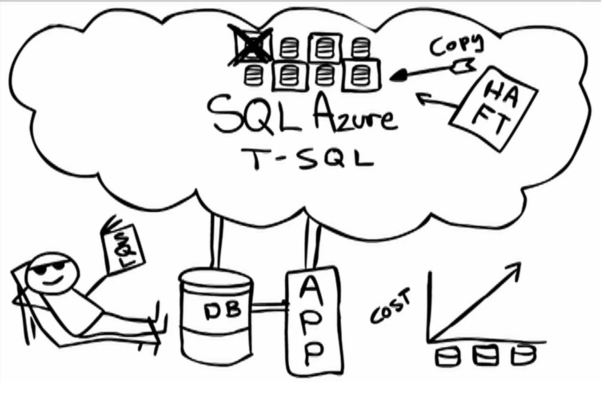 Copy
HA
FT
SQL Azure
T-SQL
SQL
DB
APP
COST